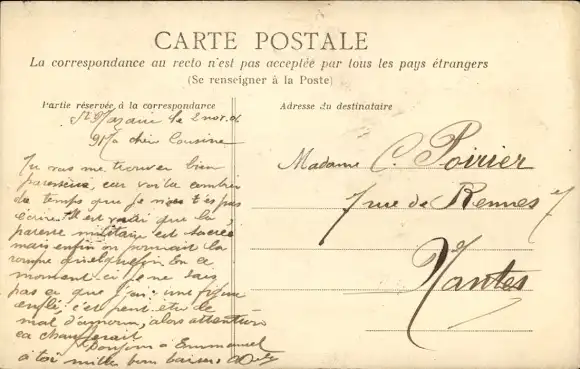 CARTE POSTALE
La correspondance au recto n'est pas acceptée par tous les pays étrangers
(Se renseigner à la Poste)
Partie réservée à la correspondance
Adresse du destinataire
St Nazaire le 2 nov.
Ma chère Cousine
Tu vas me trouver bien
paresseux, car voilà combien
de temps que je ne t'es pas
écrire. Il est vrai que la
paresse militaire est sacrée
mais enfin on pourrait la
rompre quelquefois. En ce
moment ci je ne sais
pas ce que j'ai: une figure
enflé c'est peut être le
mal d'amour, alors attention
ça chaufferait
Bonjour à Emmanuel
à toi mille bons baisers
Madame C. Poirier
7 rue de Rennes 7
Nantes